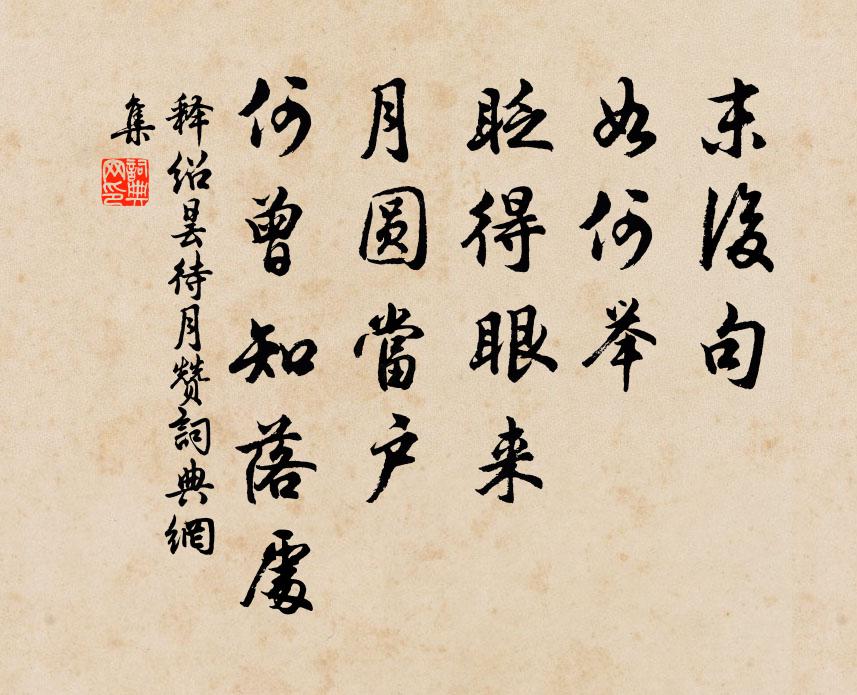 末後句
如何举
眨得眼来
月圆當户
何曾知落處
释绍昙待月赞詞典網
集
詞典
网印